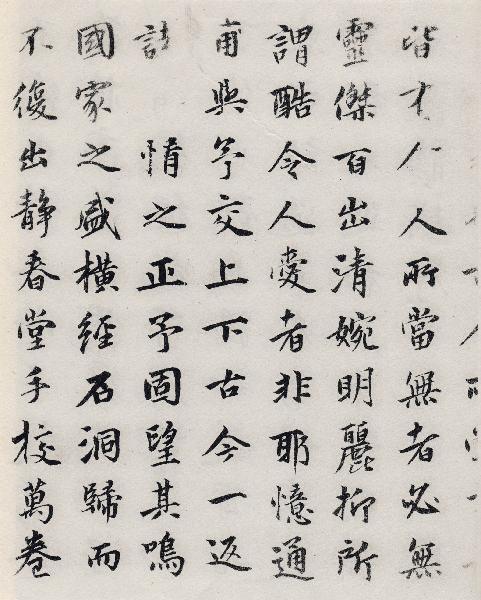 皆才人人所當無者必無
靈傑百出清婉明麗抑所
謂酷令人愛者非耶憶通
甫與予交上下古今一返
情之正予固望其鳴
國家之盛橫經石洞歸而
不復出靜春堂手校萬卷